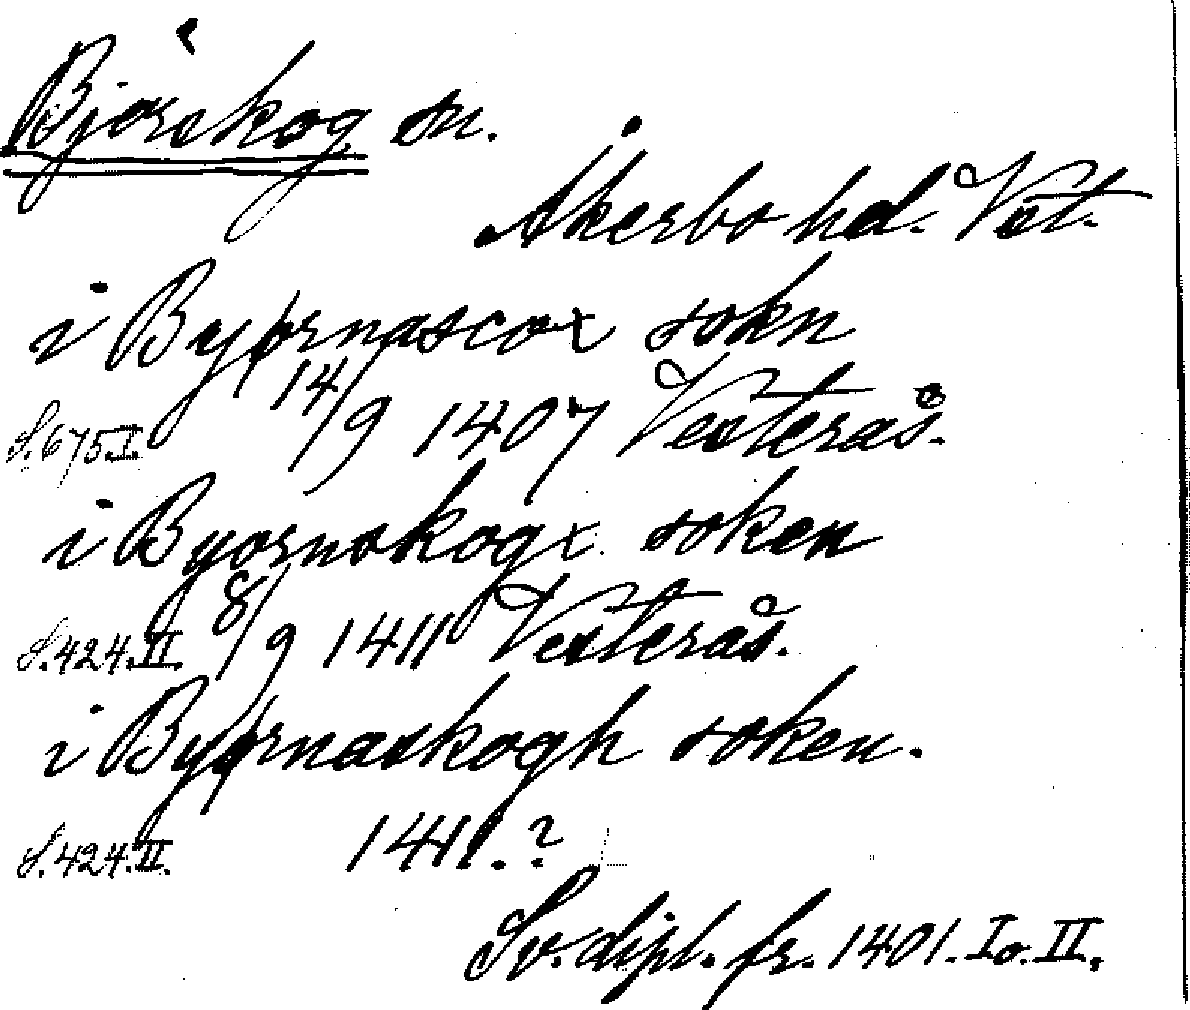 Björskog sn.
Åkerbo hd. Vst.
i Byørnascox sokn
S. 675 I. 14/9 1407 Vesterås.
i Byornskogx soken
S. 424. II. 8/9 1411 Vesterås.
i Byørnaskogh soken.
S. 424. II. 1411.?
Sv. dipl. fr. 1401. I o. II.